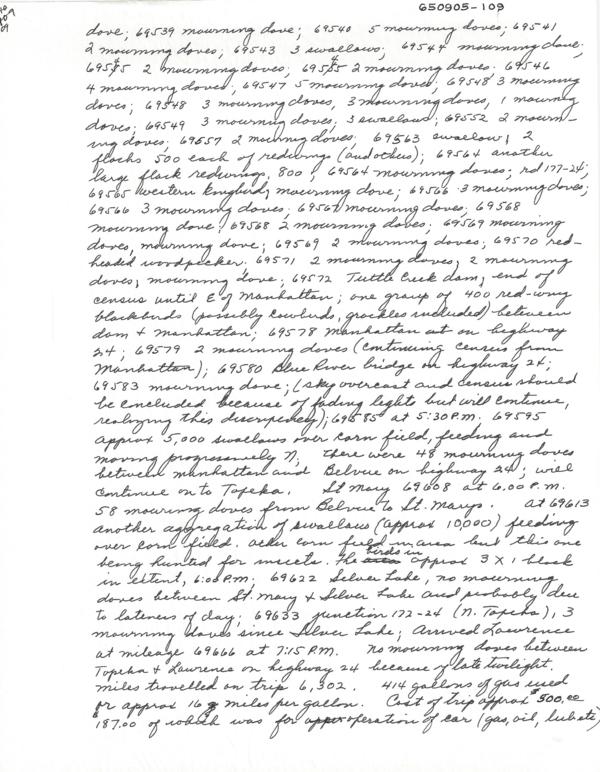 650905-109
dove; 69539 mourning dove; 69540 5 mourning doves; 69541
2 mourning doves; 69543 3 swallows; 69544 mourning dove;
69545 2 mourning doves; 69545 2 mourning doves. 69546
4 mourning doves; 69547 5 mourning doves; 69548 3 mourning
doves; 69548 3 mourning doves, 3 mourning doves, 1 mourning
doves; 69549 3 mourning doves, 3 swallows; 69552 2 mourn-
ing doves; 69557 2 mourning doves; 69563 swallow; 2
flocks 500 each of redwings (and others); 69564 another
large flock redwings, 800; 69564 mourning doves; rd 177-24;
69565 western kingbird, mourning dove; 69566 3 mourning doves;
69566 3 mourning doves; 69567 mourning doves; 69568
mourning dove; 69568 2 mourning doves; 69569 mourning
doves, mourning dove; 69569 2 mourning doves; 69570 red-
headed woodpecker. 69571 2 mourning doves; 2 mourning
doves; mourning dove; 69572 Tuttle Creek dam; end of
census until E of Manhattan; one group of 400 red-wing
blackbirds (possibly cowbirds, grackles included) between
dam + Manhattan; 69578 Manhattan out on highway
24; 69579 2 mourning doves (continuing census from
Manhattan); 69580 Blue River bridge on highway 24;
69583 mourning dove; (sky overcast and census should
be concluded because of fading lights but will continue,
realizing this discrepency); 69585 at 5:30 P.M. 69595
approx 5,000 swallows over corn field, feeding and
moving progressively N. There were 48 mourning doves
between Manhattan and Belvue on highway 24; will
continue on to Topeka. St Mary 69608 at 6:00 P.M.
58 mourning doves from Belvue to St. Marys. at 69613
another aggregation of swallows (approx 10,000) feeding
over corn field. other corn field in area but this one
being hunted for insects. The birds in approx 3 X 1 block
in extent, 6:00 P.M; 69622 Silver Lake, no mourning
doves between St. Mary + Silver Lake and probably due
to lateness of day; 69633 junction 172-24 (N. Topeka), 3
mourning doves since Silver Lake; Arrived Lawrence
at mileage 69666 at 7:15 P.M. No mourning doves between
Topeka + Lawrence on highway 24 because of late twilight.
Miles travelled on trip 6,302. 414 gallons of gas used
or approx 16 miles per gallon. Cost of trip approx $500.00
$187.00 of which was for operation of car (gas, oil, lub etc)